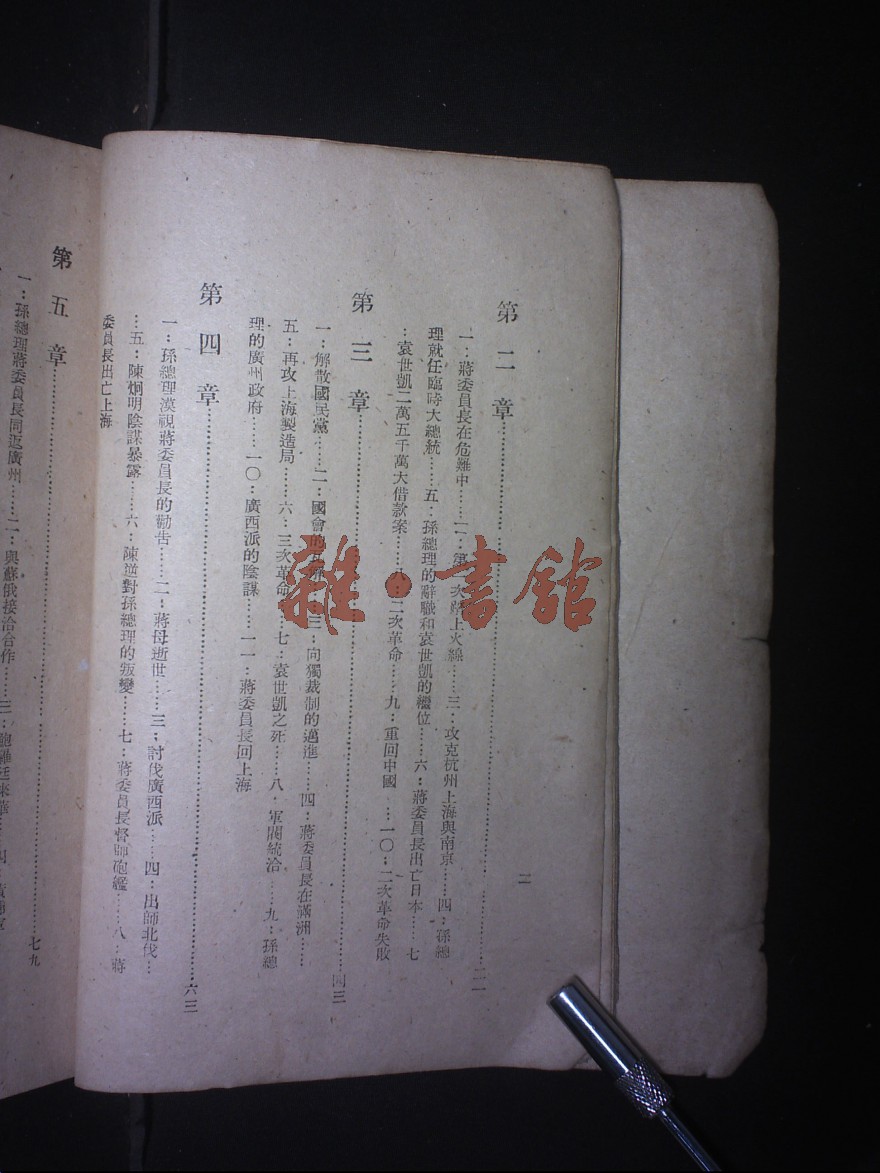 二
第二章……二一
一：蔣委員長在危難中……二：第一次踏上火線……三：攻克杭州上海與南京……四：孫總
理就任臨時大總統……五：孫總理的辭職和袁世凱的繼位……六：蔣委員長出亡日本……七
：袁世凱二萬五千萬大借款案……八：二次革命……九：重回中國……一〇：二次革命失敗
第三章……四三
一：解散國民黨……二：國會的……三：向獨裁制的邁進……四：蔣委員長在滿洲……
五：再攻上海製造局……六：三次革命……七：袁世凱之死……八：軍閥統治……九：孫總
理的廣州政府……一〇：廣西派的陰謀……一一：蔣委員長回上海
第四章……六三
一：孫總理漠視蔣委員長的勸告……二：蔣母逝世……三：討伐廣西派……四：出師北伐…
…五：陳炯明陰謀暴露……六：陳逆對孫總理的叛變……七：蔣委員長督師砲艦……八：蔣
委員長出亡上海
第五章……七九
一：孫總理蔣委員長同返廣州……二：與蘇俄接洽合作……三：鮑羅廷來華……四：
雜·書館